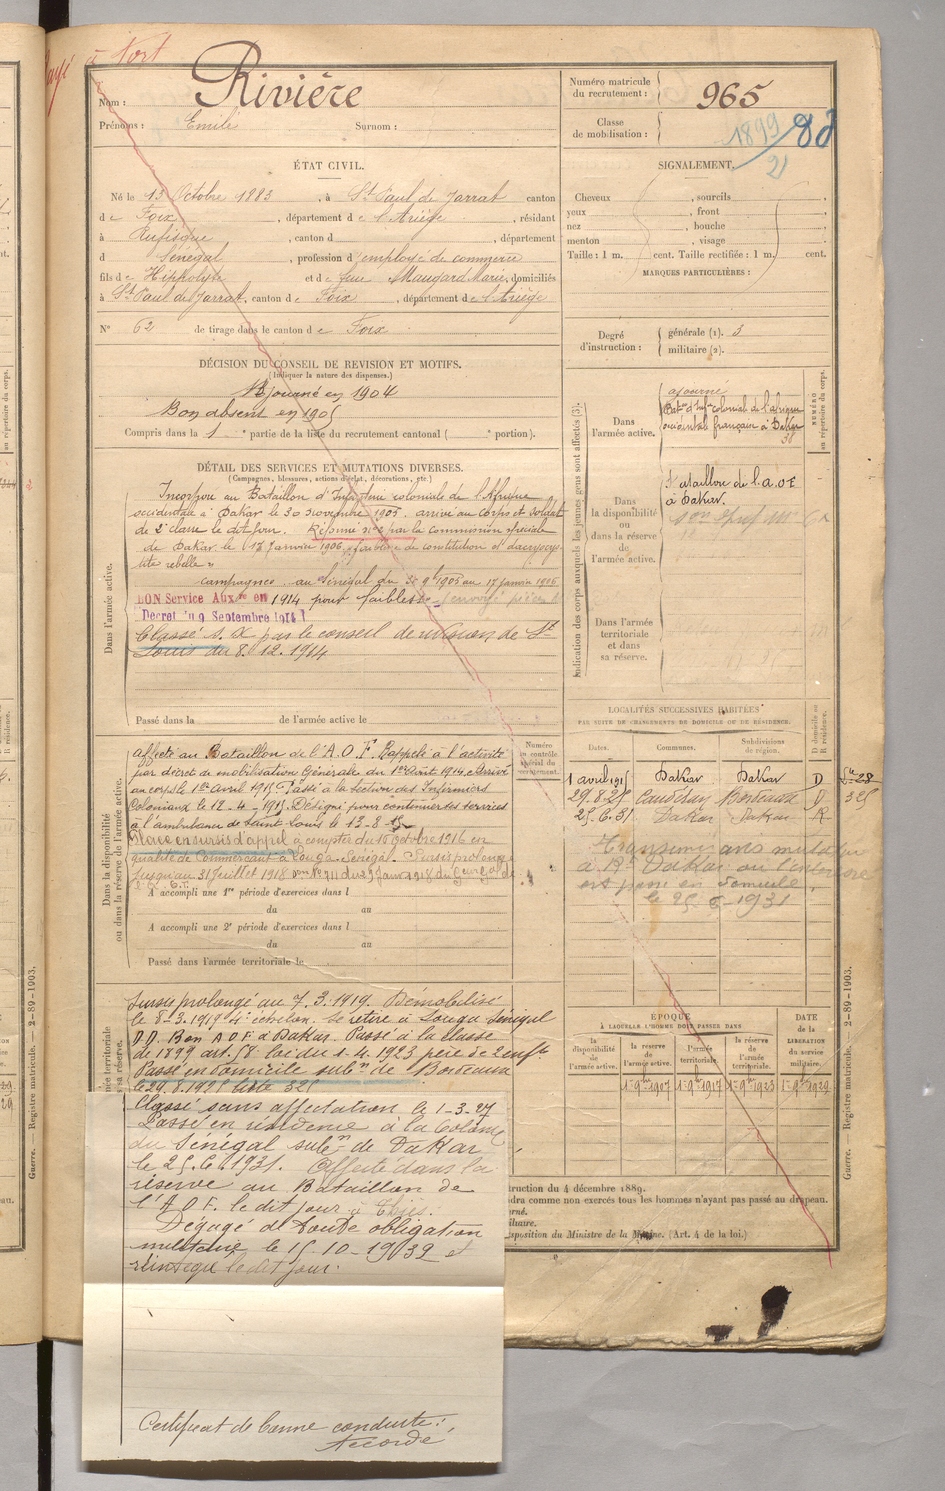 à tort
Nom : Rivière
Prénoms : Emile Surnom :
Numéro matricule du recrutement : 965
Classe de mobilisation : 1899
21
ÉTAT CIVIL.
Né le 13 Octobre 1883, à St Paul de Jarrat canton
de Foix, département de l'Ariège, résidant
à Rufisque, canton d , département
d Sénégal, profession d'employé de commerce
fils de Hippolyte et de feue Maugard Marie, domiciliés
à St Paul de Jarrat, canton de Foix, département de l'Ariège
N° 62 de tirage dans le canton de Foix
SIGNALEMENT.
Cheveux , sourcils ,
yeux , front ,
nez , bouche ,
menton , visage
Taille : 1 m. cent. Taille rectifiée : 1 m. cent.
MARQUES PARTICULIÈRES :
Degré d'instruction : générale (1). 3
militaire (2).
DÉCISION DU CONSEIL DE REVISION ET MOTIFS.
(Indiquer la nature des dispenses.)
Ajourné en 1904
Bon absent en 1905
Compris dans la 1 e partie de la liste du recrutement cantonal ( e portion).
DÉTAIL DES SERVICES ET MUTATIONS DIVERSES.
(Campagnes, blessures, actions d'éclat, décorations, etc.)
Dans l'armée active.
Incorporé au Bataillon d'Infanterie coloniale de l'Afrique
occidentale à Dakar le 30 novembre 1905. arrivé au corps et soldat
de 2e classe le dit jour. Réformé n° 2 par la commission spéciale
de Dakar le 17 janvier 1906 "faiblesse de constitution et
rebelle"
campagnes au Sénégal du 30 9bre 1905 au 17 janvier 1906
BON Service Auxre en 1914 pour faiblesse
Décret du 9 Septembre 1914
Classé S. X par le conseil de révision de St
Louis du 8.12.1914
Passé dans la de l'armée active le
Indication des corps auxquels les jeunes gens sont affectés (3).
NUMÉRO au répertoire du corps.
Dans l'armée active.
ajourné
Baton d'Infie coloniale de l'afrique
occidentale française à Dakar
38
Dans la disponibilité ou dans la réserve de l'armée active.
Bataillon de l'A.O.F.
à Dakar.
Dans l'armée territoriale et dans sa réserve.
LOCALITÉS SUCCESSIVES HABITÉES
PAR SUITE DE CHANGEMENTS DE DOMICILE OU DE RÉSIDENCE.
Dates. Communes. Subdivisions de région. D domicile ou R résidence.
1 avril 1915 Dakar Dakar D
29.8.25 Caudéran Bordeaux D 325
25.6.31 Dakar Dakar R
Dans la disponibilité ou dans la réserve de l'armée active.
Numéro au contrôle spécial du recrutement.
affecté au Bataillon de l'A.O.F. Rappelé à l'activité
par décret de mobilisation Générale du 1er Août 1914. Arrivé
au corps le 1er Avril 1915. Passé à la section des Infirmiers
Coloniaux le 12-4-1915. Désigné pour continuer ses services
à l'ambulance de Saint Louis le 13-8-15
Placé en sursis d'appel à compter du 10 octobre 1916 en
qualité de Commerçant à Louga Sénégal. Sursis prolongé
jusqu'au 31 juillet 1918
A accompli une 1re période d'exercices dans l
du au
A accompli une 2e période d'exercices dans l
du au
Passé dans l'armée territoriale le
le 25-6-1931
Sursis prolongé au 7.3.1919. Démobilisé
le 8-3-1919 4e échelon. Se retire à Louga Sénégal
D.D. Bon A.O.F. à Dakar. Passé à la classe
de 1899 art. 58 loi du 1.4.1923 père de 2 enfts
Passé en domicile subon de Bordeaux
le 29.8.1925 liste 325
Classé sans affectation le 1-3-27
Passé en résidence à la Colonie
du Sénégal subon de Dakar
le 25.6.1931. Affecté dans la
réserve au Bataillon de
l'A.O.F. le dit jour à Thiès.
Dégagé de toute obligation
militaire le 15-10-1932 et
le dit jour.
Certificat de bonne conduite :
Accordé
ÉPOQUE
À LAQUELLE L'HOMME DOIT PASSER DANS
la disponibilité de l'armée active. la réserve de l'armée active. l'armée territoriale. la réserve de l'armée territoriale.
DATE de la LIBÉRATION du service militaire.
1er 9bre 1907 1er 9bre 1917 1er 9bre 1923 1er 9bre 1929
truction du 4 décembre 1889.
dra comme non exercés tous les hommes n'ayant pas passé au drapeau.
urné.
ilitaire.
isposition du Ministre de la Marine. (Art. 4 de la loi.)
Guerre. — Registre matricule. — 2-89-1903.
Guerre. — Registre matricule. — 2-89-1903.